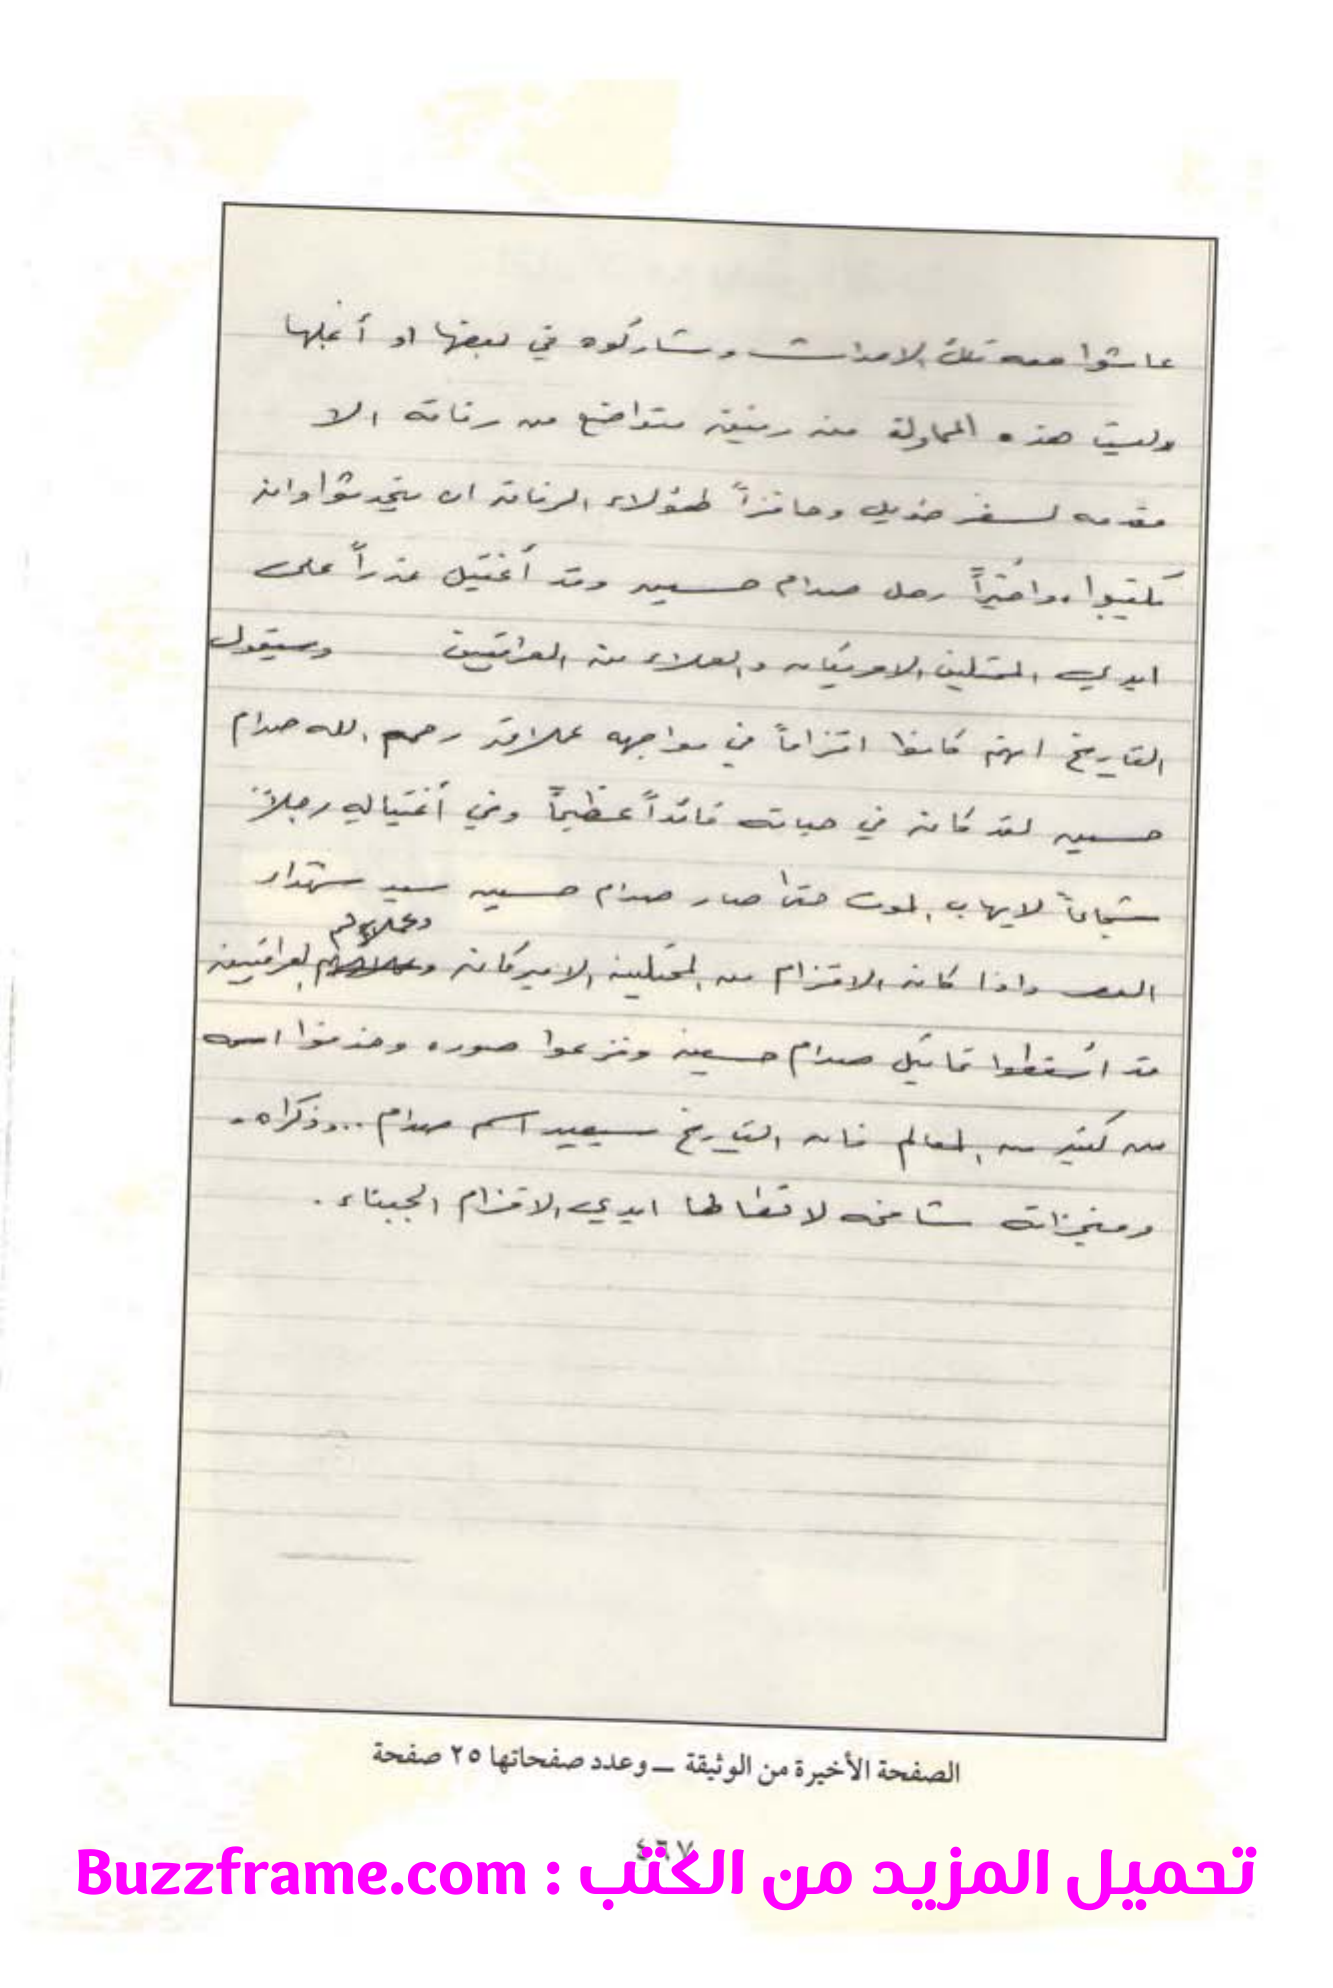 عاشوا معه تلك الاحداث وشاركوه في بعضها او أغلبها
وليست هذه المحاولة من رفيق متواضع من رفاقه الا
مقدمه لسفر طويل وحافزاً لهؤلاء الرفاق ان يتحدثوا وان
يكتبوا. وأخيراً رحل صدام حسين وقد أغتيل غدراً على
ايدي المحتلين الامريكان والعملاء من العراقيين وسيقول
التاريخ انهم كانوا اقزاماً في مواجهه عملاق رحم الله صدام
حسين لقد كان في حياته قائداً عظيماً وفي أغتياله رجلاً
شجاعاً لايهاب الموت حتى صار صدام حسين سيد شهداء
وعملائهم
العصر واذا كان الاقزام من المحتلين الاميركان العراقيين
قد أسقطوا تماثيل صدام حسين ونزعوا صوره وحذفوا اسمه
من كثير من المعالم فان التاريخ سيعيد اسم صدام ...وذكراه.
ومنجزاته شامخه لاتطالها ايدي الاقزام الجبناء.
الصفحة الأخيرة من الوثيقة ــ وعدد صفحاتها ٢٥ صفحة
٤٦٧
تحميل المزيد من الكتب : Buzzframe.com